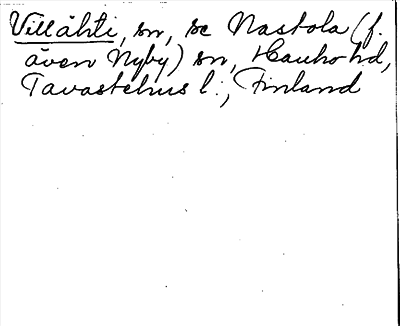 Villähti, sn, se Nastola (f.
även Nyby) sn, Hauho hd,
Tavastehus l., Finland